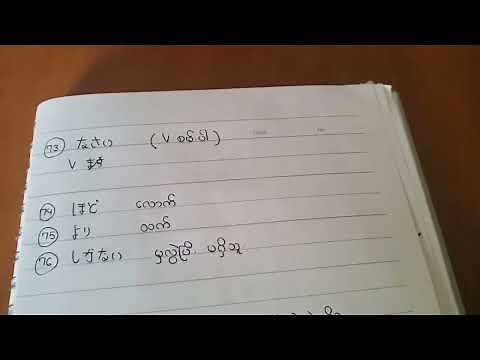 73 なさい (V စမ်းပါ)
V ます
74 ほど လောက်
75 より ထက်
76 しかない မှလွဲပြီး မရှိဘူး